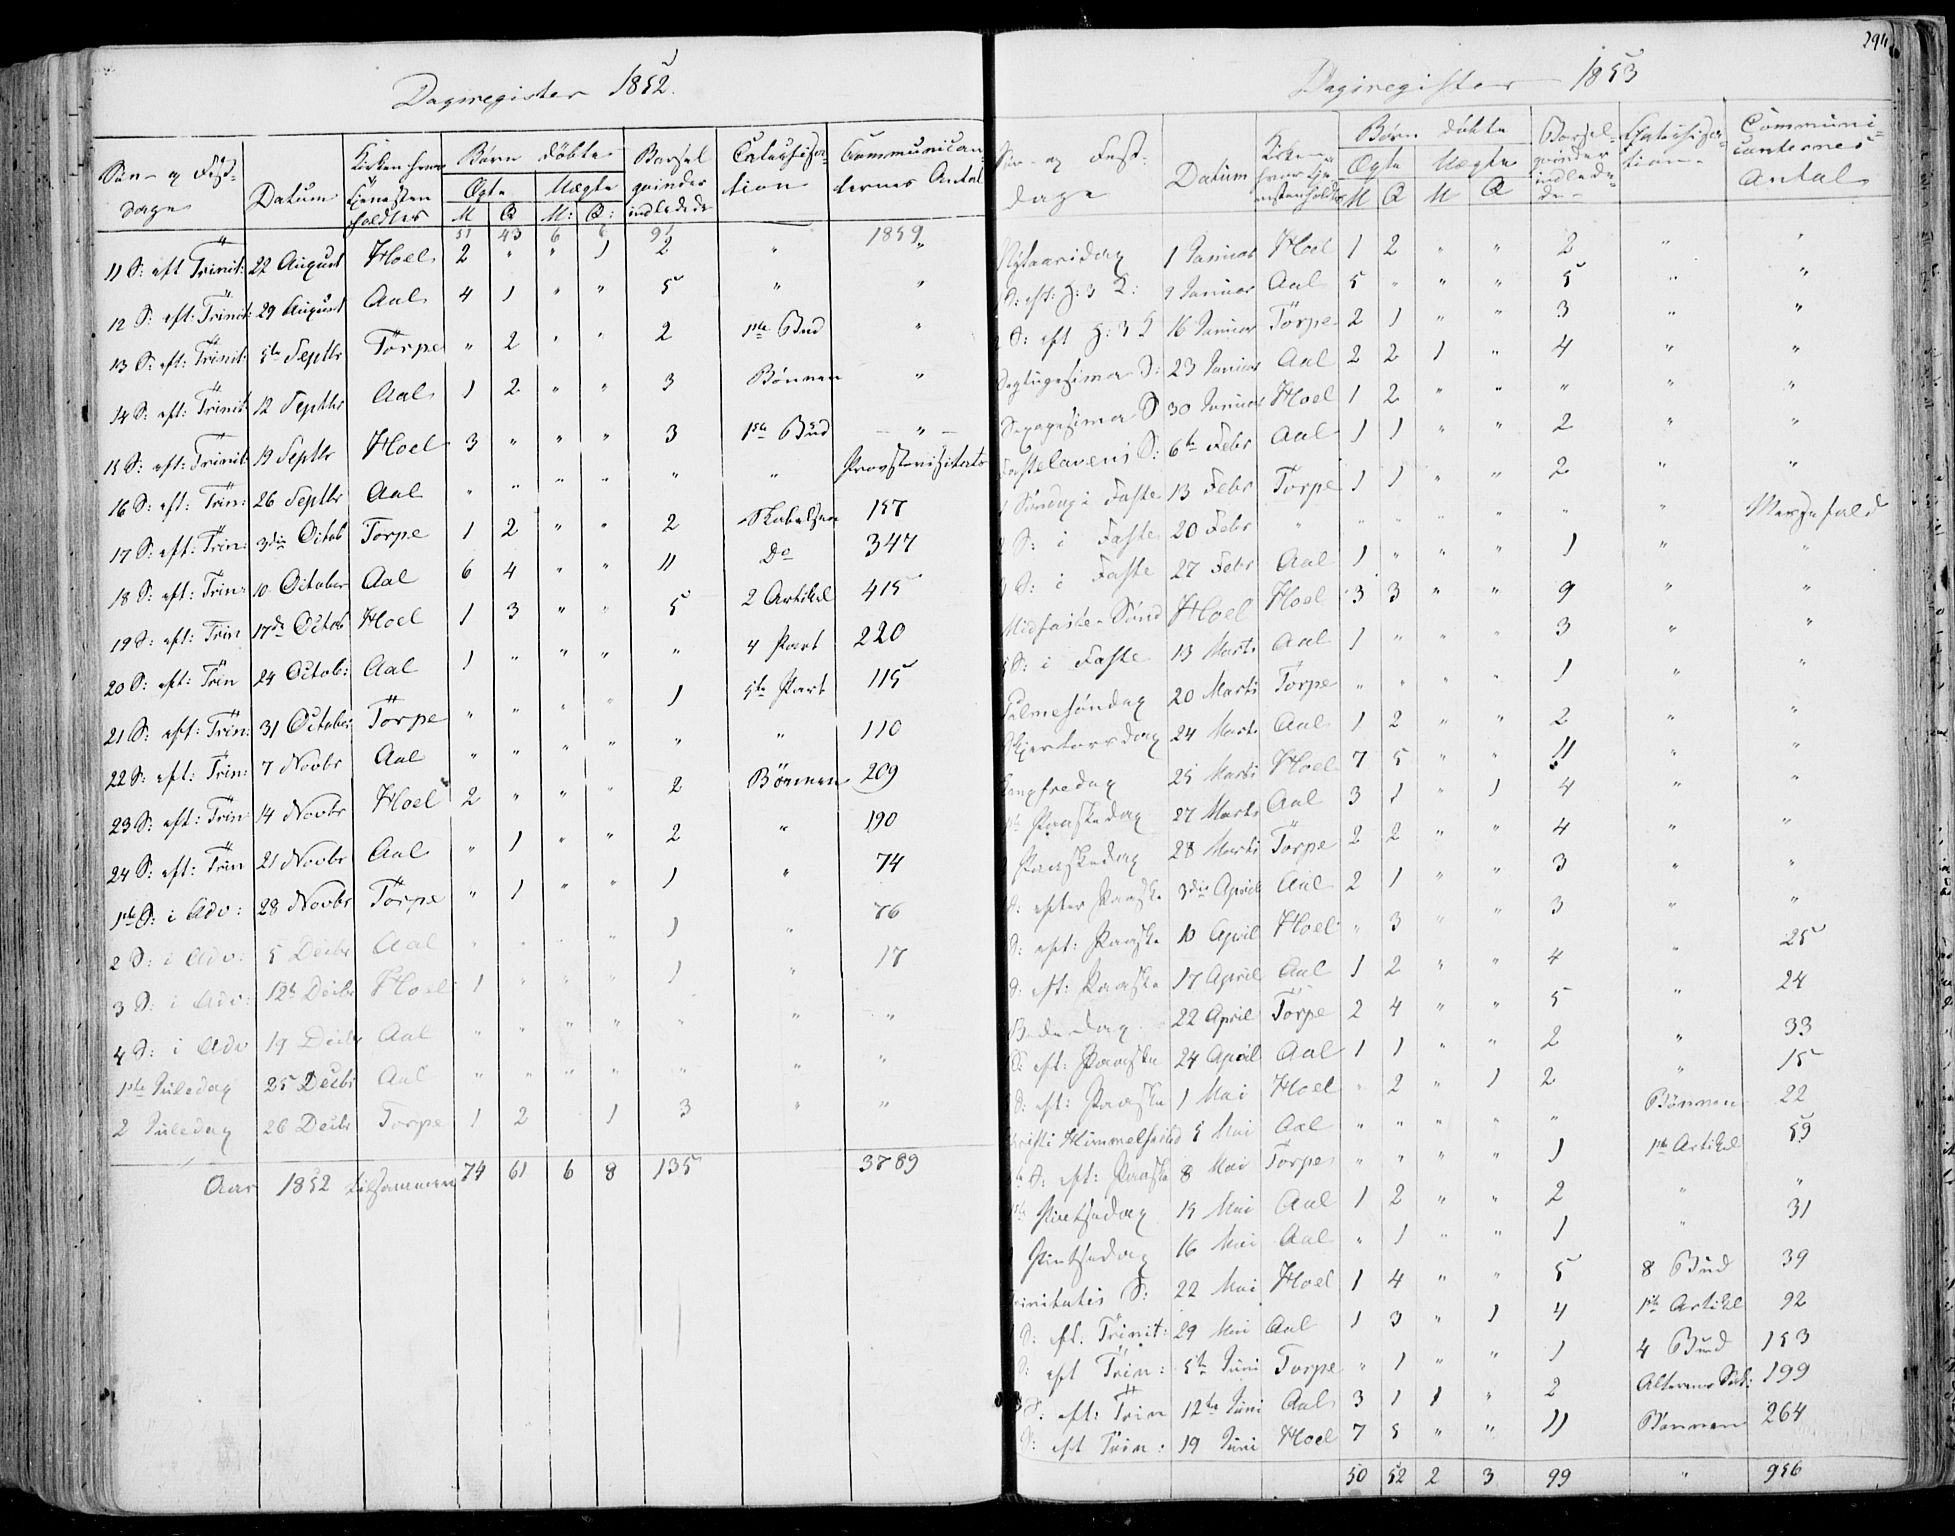 Dagsregister 1852.
Søn- og Fest-dage | Datum | Kirken hvor Tjenesten holdtes | Børn døbte Ægte M Q Uægte M: Q: | Barsel qvinder indledede | Catechisa-tion | Communican-ternes Antal
51 43 6 6 91 1859
11 S: eft Trinit: 22 August Hoel 2 " " 1 2 " "
12 S: eft: Trinit: 29 August Aal 4 1 " " 5 " "
13 S: eft: Trinit: 5te Septbr Torpe " 2 " " 2 1ste Bud "
14 S: eft: Trinit: 12 Septbr Aal 1 2 " " 3 Bönnen "
15 S: eft: Trinit: 19 Septbr Hoel 3 " " " 3 1ste Bud - " -
16 S: eft: Trin: 26 Septbr Aal " " " " " " Provstevisitats
17 S: eft: Trin: 3die Octob Torpe 1 2 " " 2 Skabelsen 157
18 S: eft: Trin: 10 October Aal 6 4 " " 11 Do 347
19 S: eft: Trin 17de Octob Hoel 1 3 " " 5 2 Artikel 415
20 S: eft: Trin 24 Octob: Aal 1 " " " " 4 Part 220
21 S: eft: Trin: 31 October Torpe " " " " 1 5te Part 115
22 S: eft: Trin: 7 Novbr Aal " " " " " " 110
23 S: eft: Trin 14 Novbr Hoel 2 " " " 2 Bönnen 209
24 S: eft: Trin 21 Novbr Aal " 1 " " 2 " 190
1ste S: i Adv: 28 Novbr Torpe " 1 " " 1 " 74
2 S: i Adv: 5 Decbr Aal " " " " 1 " 76
3 S: i Adv: 12te Decbr Hoel 1 " " " 1 " 17
4 S: i Adv 19 Decbr Aal " " " " " " "
1ste Juledag 25 Decbr Aal " " " " " " "
2 Juledag 26 Decbr Torpe 1 2 1 3 " "
Aar 1852 tilsammen 74 61 6 8 135 3789
294
Dagsregister 1853
Søn- og Fest-dage | Datum | Kirke hvor Tje-nesten holdtes | Børn døbte Ægte M Q Uægte M Q | Barsel-qvinder indlede-de- | Catechisa-tion- | Communi-canternes Antal
Nytaarsdag 1 Januar Hoel 1 2 " " 2 " "
S: eft: H: 3 K: 9 Januar Aal 5 " " " 5 " "
S: eft H: 3 K 16 Januar Torpe 2 1 " " 3 " "
Septugesima S: 23 Januar Aal 2 2 1 " 4 " "
Sexagesima S 30 Januar Hoel 1 2 " " " " "
Fastelavens S: 6te Febr Aal 1 1 " " 2 " "
Søndag i Faste 13 Febr Torpe 1 1 " " 2 " "
S: i Faste 20 Febr " " " " " " " Messefald
S: i Faste 27 Febr Aal 1 " " " 1 " "
Midfaste-Sønd Hoel Hoel 3 3 " " 9 " "
S: i Faste 13 Marts Aal 1 " " " 3 " "
Palmesøndag 20 Marts Torpe " " " " 1 " "
Skjertorsdag 24 Marts Aal 1 2 " " 2 " "
Langfredag 25 Marts Hoel 7 5 " " 11 " "
1ste Paaskedag 27 Marts Aal 3 1 " 1 4 " "
Paaskedag 28 Marts Torpe 2 2 " " 4 " "
S: efter Paaske 3die April Aal 2 1 " " 3 " "
S: eft: Paaske 10 April Hoel " 3 " " 3 " "
S: eft: Paaske 17 April Aal 1 2 " " 4 " 25
Bededag 22 April Torpe 2 4 " " 5 " 24
S: eft: Paaske 24 April Aal 1 1 " " 2 " 33
S: eft: Paaske 1 Mai Hoel " 2 " 1 2 " 15
Christi Himmelfarts 5 Mai Aal " " " " " Bönnen 22
S: eft: Paaske 8 Mai Torpe " " " " 1 1ste Artikel 59
1ste Pintsedag 15 Mai Aal 1 2 " " 2 " "
Pintsedag 16 Mai Aal " 1 " " 1 " 31
Trinitatis S: 22 Mai Hoel 1 4 " " 5 8 Bud 39
S: eft. Trinit: 29 Mai Aal 1 3 " 1 4 1ste Artikel 92
S: eft Trin: 5te Juni Torpe " 1 " " 1 4 Bud 153
S: eft: Trin 12te Juni Aal 3 1 1 " 2 Alterens Sak: 199
S: eft Trin: 19 Juni Hoel 7 5 " " 11 Bönnen 264
50 52 2 3 99 " 956